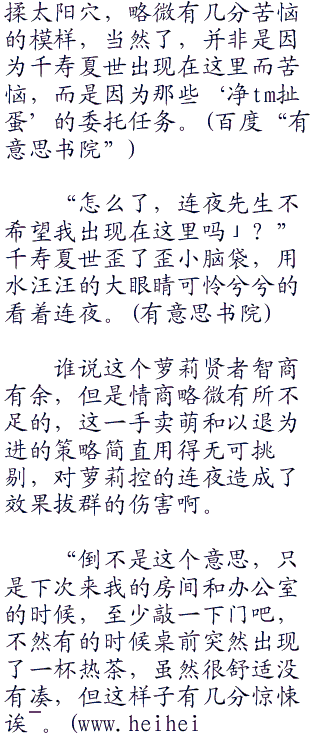 揉太阳穴，略微有几分苦恼
的模样，当然了，并非是因
为千寿夏世出现在这里而苦
恼，而是因为那些‘净tm扯
蛋’的委托任务。(百度“有
意思书院”)
“怎么了，连夜先生不
希望我出现在这里吗」？”
千寿夏世歪了歪小脑袋，用
水汪汪的大眼睛可怜兮兮的
看着连夜。(有意思书院)
谁说这个萝莉贤者智商
有余，但是情商略微有所不
足的，这一手卖萌和以退为
进的策略简直用得无可挑
剔，对萝莉控的连夜造成了
效果拔群的伤害啊。
“倒不是这个意思，只
是下次来我的房间和办公室
的时候，至少敲一下门吧，
不然有的时候桌前突然出现
了一杯热茶，虽然很舒适没
有凑，但这样子有几分惊悚
诶¯。(www.heihei